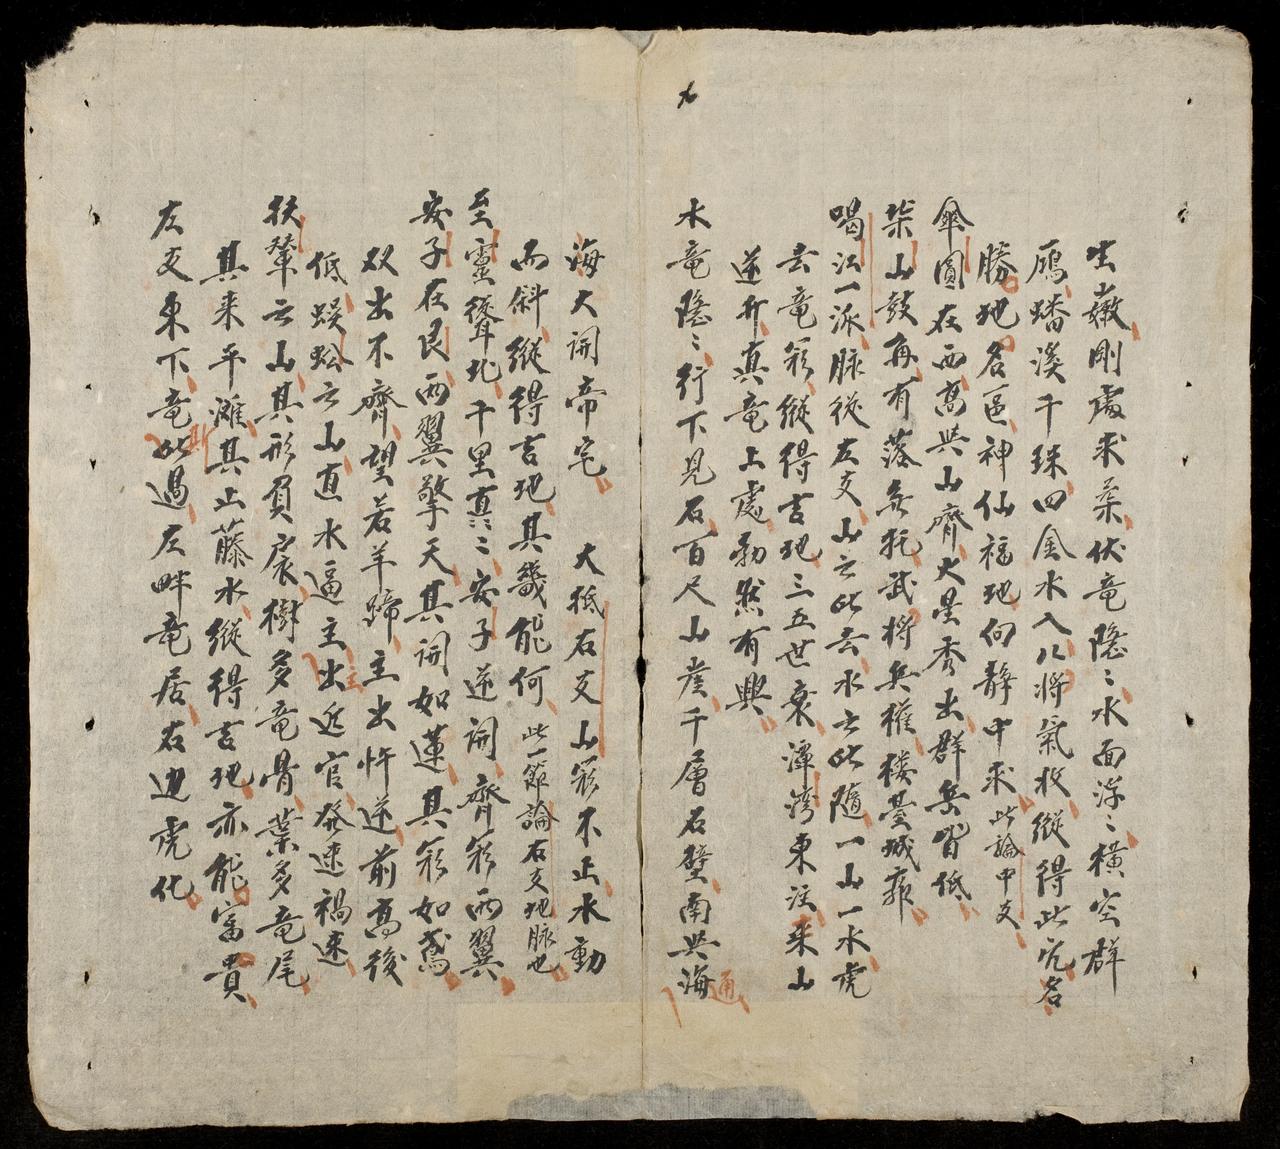 生山嫩剛處求葉伏竜隐〻水面浮〻橫空群
鴈蟠溪千珠四金水入八將氣收縱得此穴名
勝地名區神仙福地向静中求此論中支
傘圓在西高與山齊火星秀出群岳皆低
柴山鼓再有落無托武将兵權楼臺城
喝江一派脉從左支山云此去水云此隨一山一水虎
去竜窮縱得吉地三五世衰潭湾東注来山
逆升真竜上處勃然有興
木竜隐〻行下見石百尺山崖千層石壁南與海
通
海大開帝宅 大抵右支山窮不止水動
而斜縱得吉地其幾能何此一節論右支地脉也
至靈聳北千里真〻安子逆開齊窮两翼
安子在艮两翼擎天其開如蓮其窮如鳶
双出不齊望若羊蹄主出忤逆前高後
低蜈蚣云山直水逼主出近官發速禍速
主
扶輦云山其形負扆樹多竜骨葉多竜尾
其来平灘其止藤水縱得吉地亦能富貴
左支東下竜此過左畔竜居右边虎化